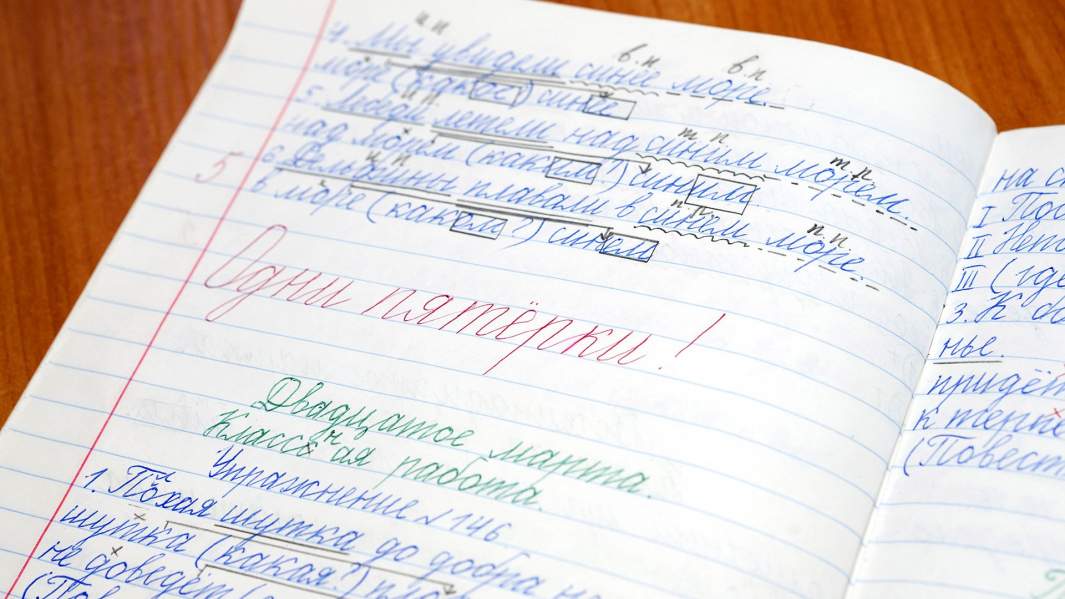 и.п в.п в.п
4. Мы увидели синее море.
море (какое?) синее
и.п т.п т.п
5. летели над синим морем.
над морем (каким?) синим
и.п п.п п.п
6. Дельфины плавали в синем море.
в море (каком?) синем
5
Одни пятёрки!
Двадцатое марта.
Классная работа.
Упражнение №146
1. Плохая шутка до добра не
шутка (какая?) плохая
не доведёт
(Пов
на
I
II
III (где
3. К
нье.
придёт
к
(Повест